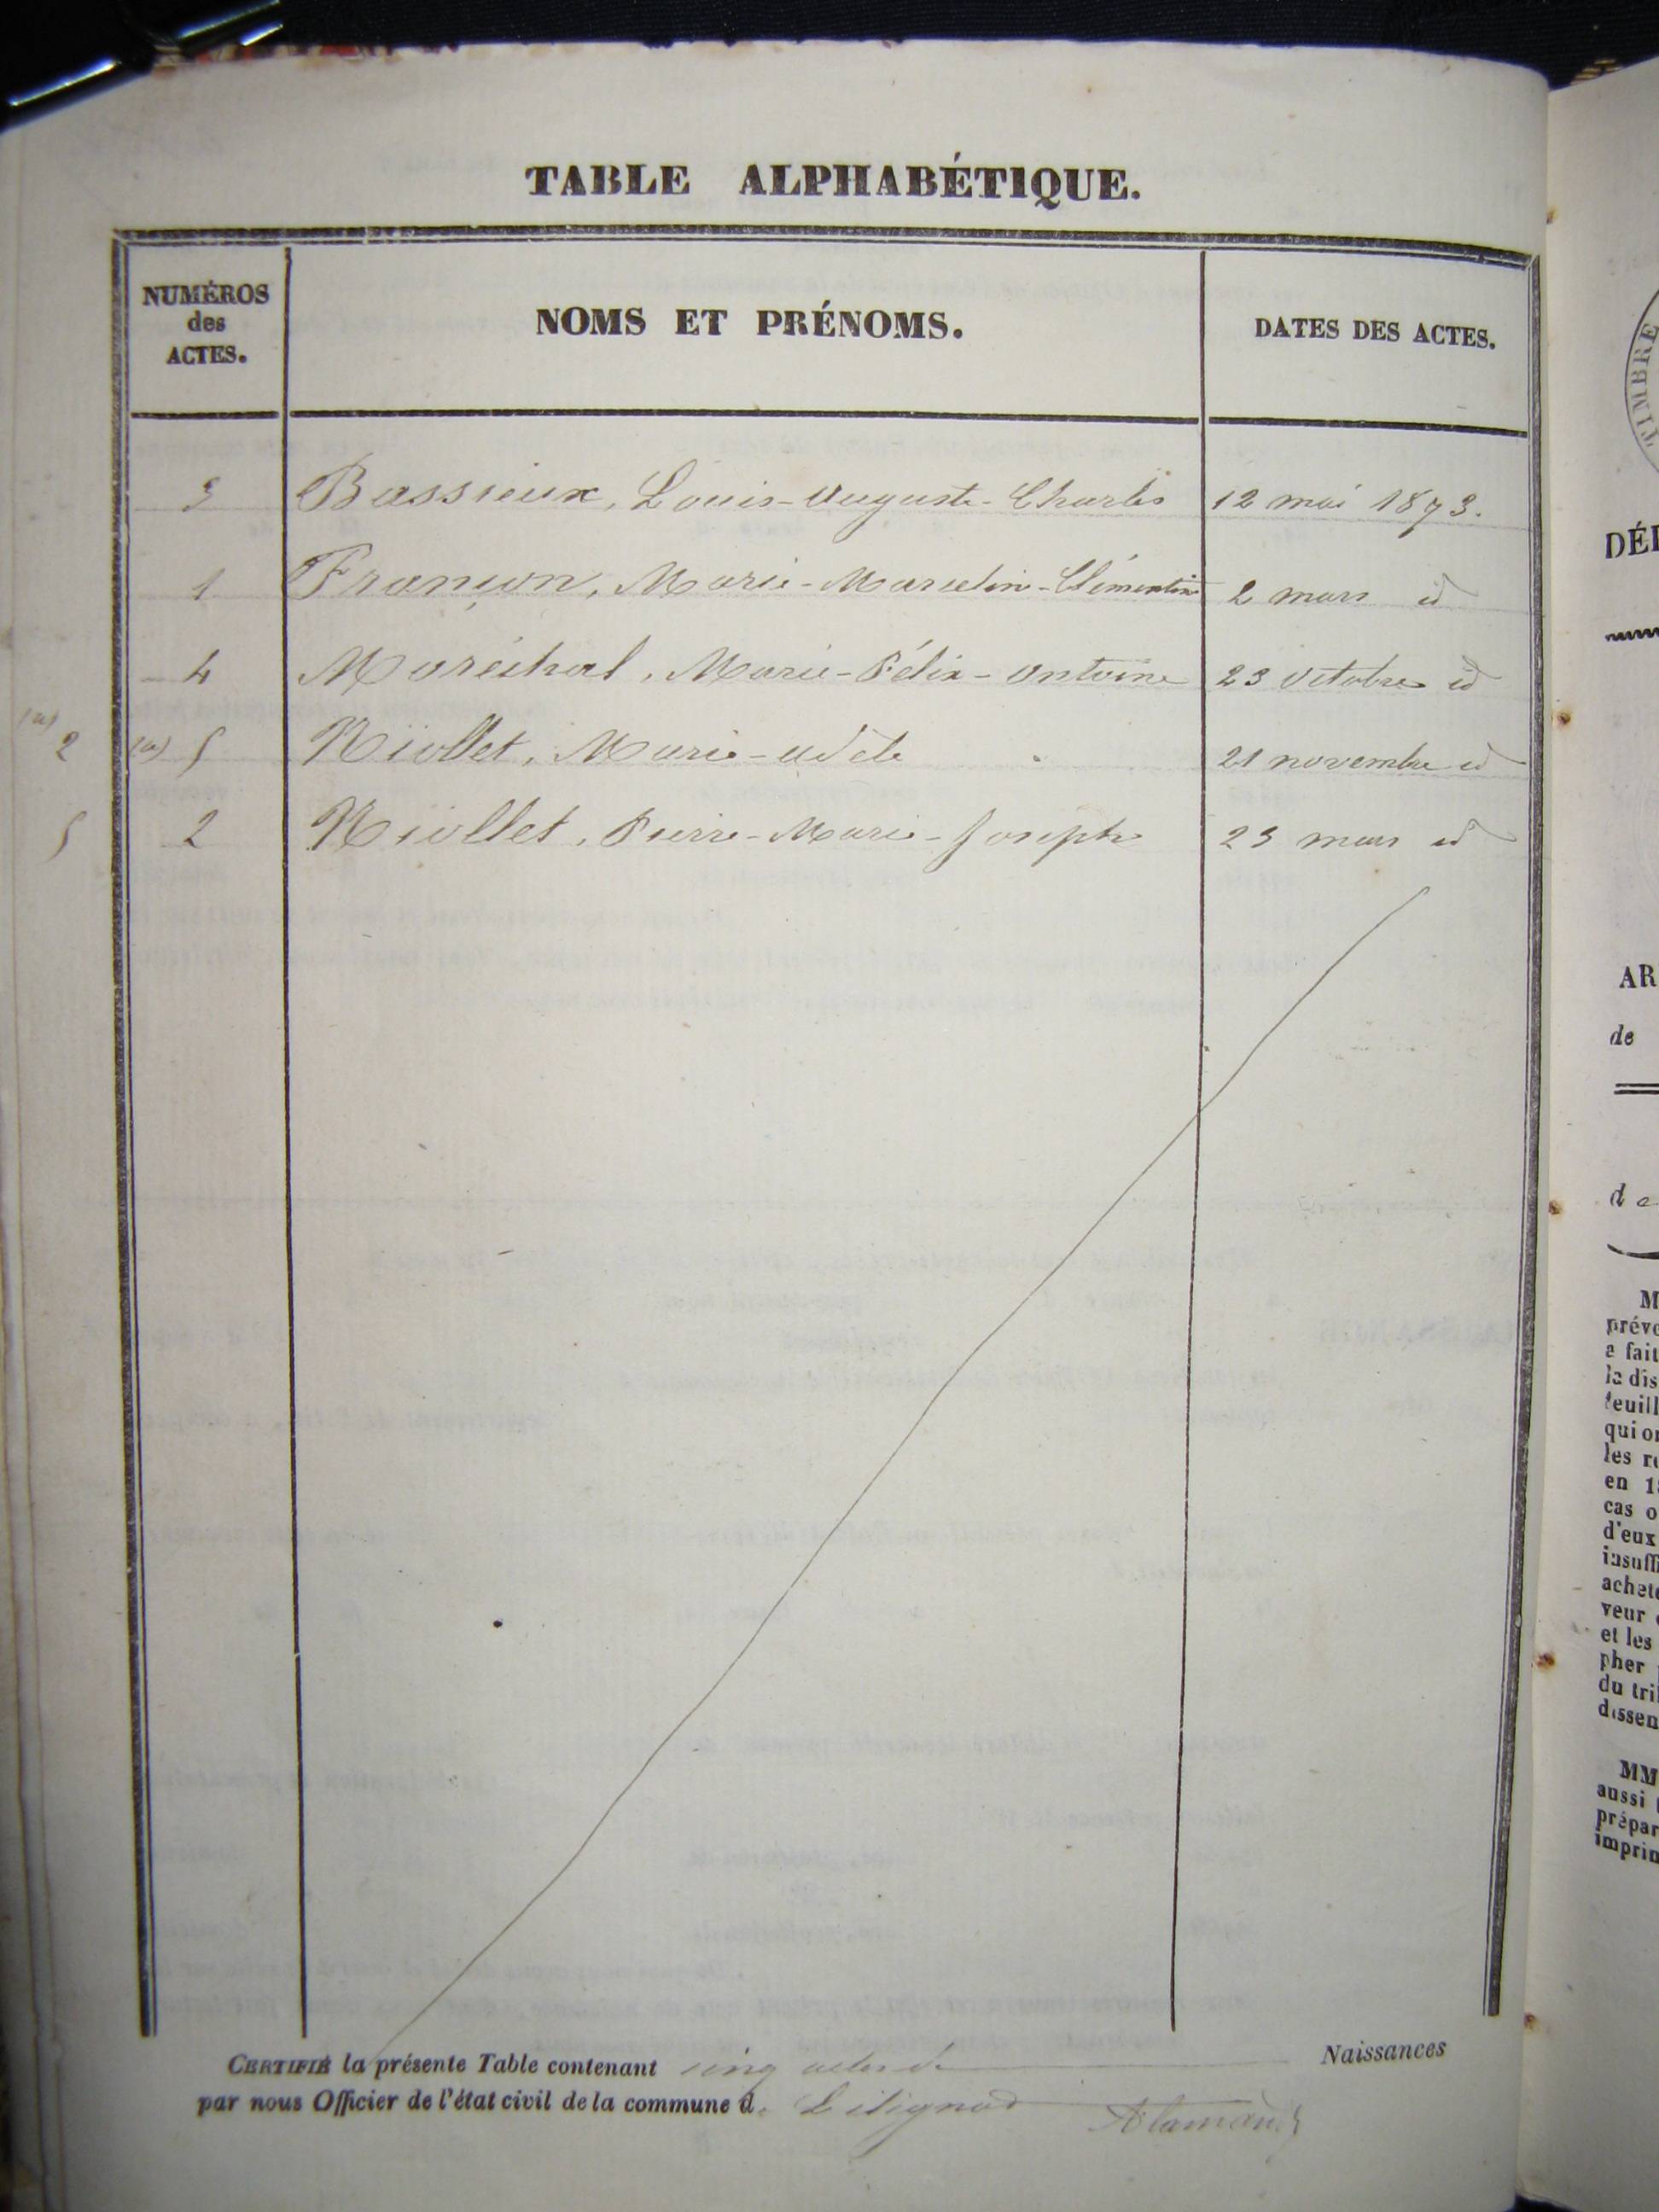 TABLE ALPHABÉTIQUE.
NUMÉROS
des
ACTES.
NOMS ET PRÉNOMS.
DATES DES ACTES.
3 Bassieux, Louis-Auguste-Charles 12 mai 1873.
1 Françon, Marie-Marcelin-Clémentine 2 mars id
4 Maréchal, Marie-Félix-Antoine 23 octobre id
(a) 2 (a) 5 Niollet, Marie-Adèle 21 novembre id
5 2 Niollet, Pierre-Marie-Joseph 23 mars id
CERTIFIÉ la présente Table contenant cinq actes de Naissances
par nous Officier de l'état civil de la commune d. Lilignod
TIMBRE
DÉ
AR
de
de
M
prév
a fait
la dis
feuill
qui o
les r
en 1
cas o
d'eux
insuffi
achet
veur
et les
pher
du tri
dissen
MM
aussi
prépar
imprim